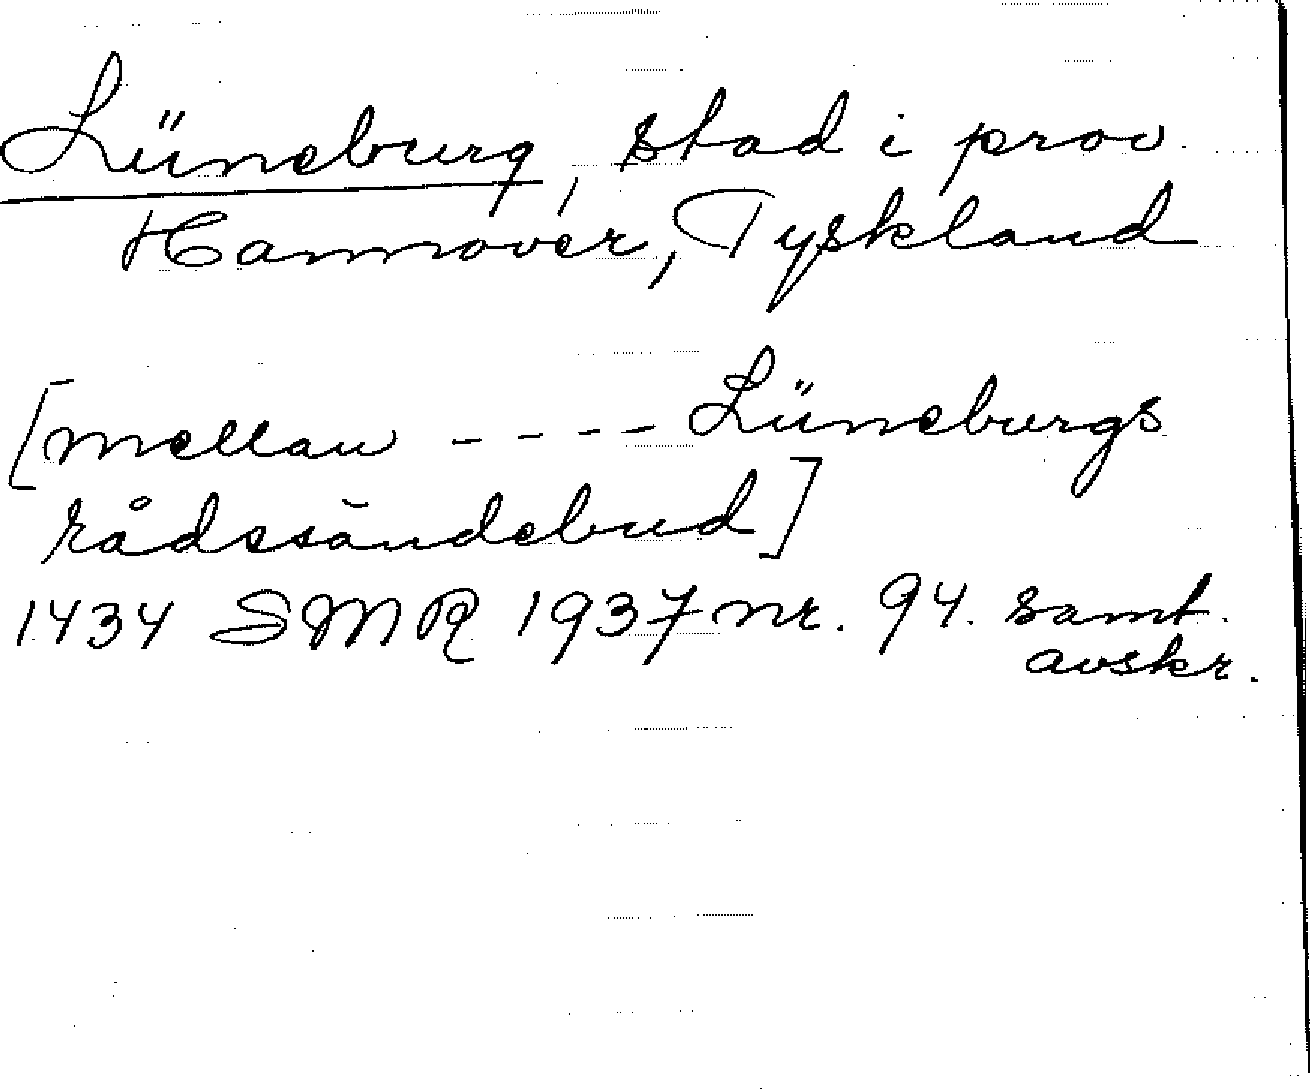 Lüneburg, stad i prov.
Hannover, Tyskland
[mellan ---- Lüneburgs
rådssändebud]
1434 SMR 1937 nr. 94. samt.
avskr.